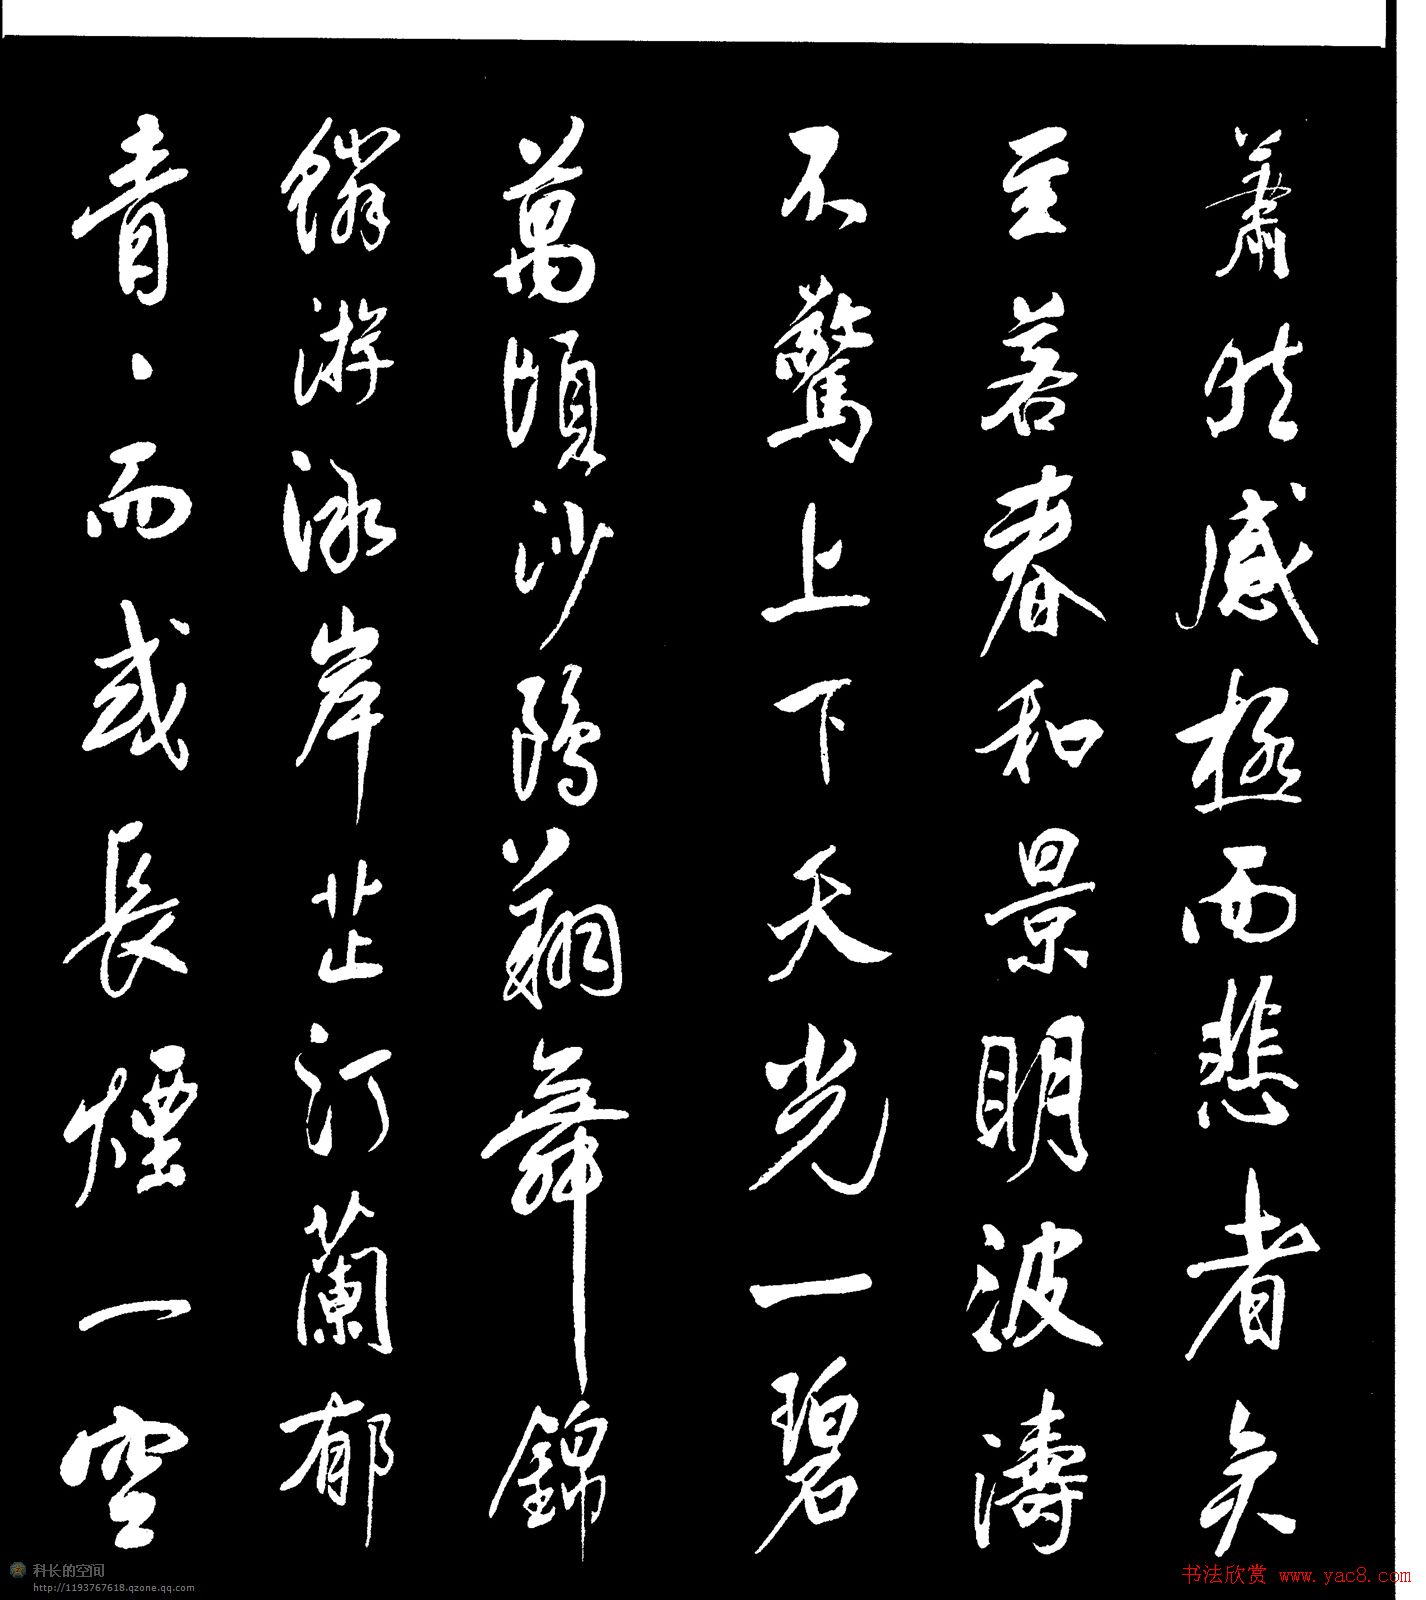 蕭然感極而悲者矣
至若春和景明波濤
不驚上下天光一碧
萬頃沙鷗翔舞錦
鱗游泳岸芷汀蘭郁
青、而或長煙一空
科长的空间
http://1193767618.qzone.qq.com
书法欣赏 www.yac8.com